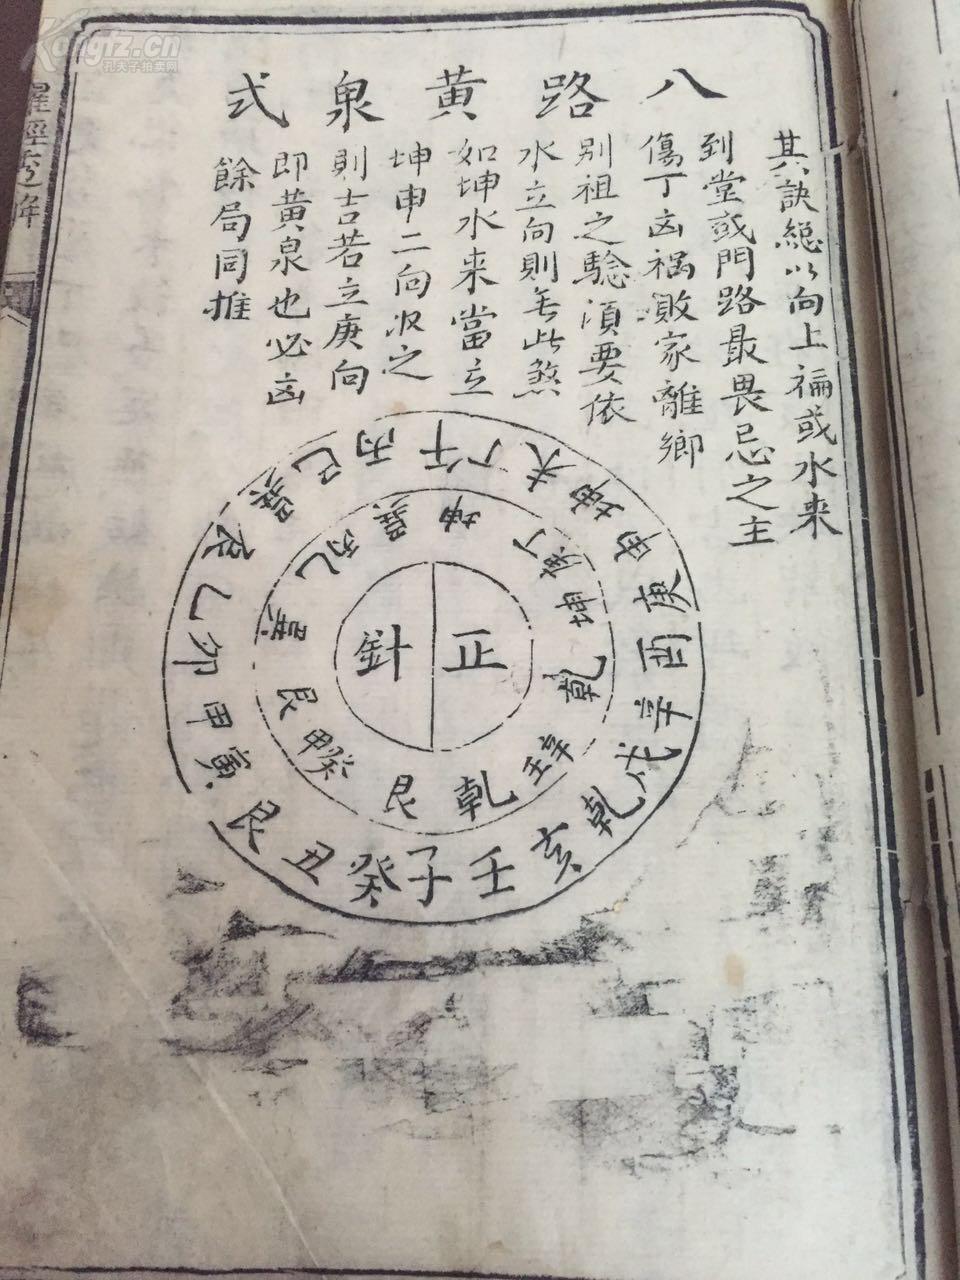 八路黄泉式
其訣總以向上徧或水來
到堂或門路最畏忌之主
傷丁凶禍敗家離鄉
别祖之驗須要依
水立向則無此煞
如坤水来當立
坤申二向收之
則吉若立庚向
即黄泉也必凶
餘局同推
正針
乾
辛壬
乾
艮
癸甲
艮
巽
乙
巽
坤
丁庚
坤
子癸丑艮寅甲卯乙辰巽巳丙午丁未坤申庚酉辛戌乾亥壬
Kongfz.cn
孔夫子拍卖网